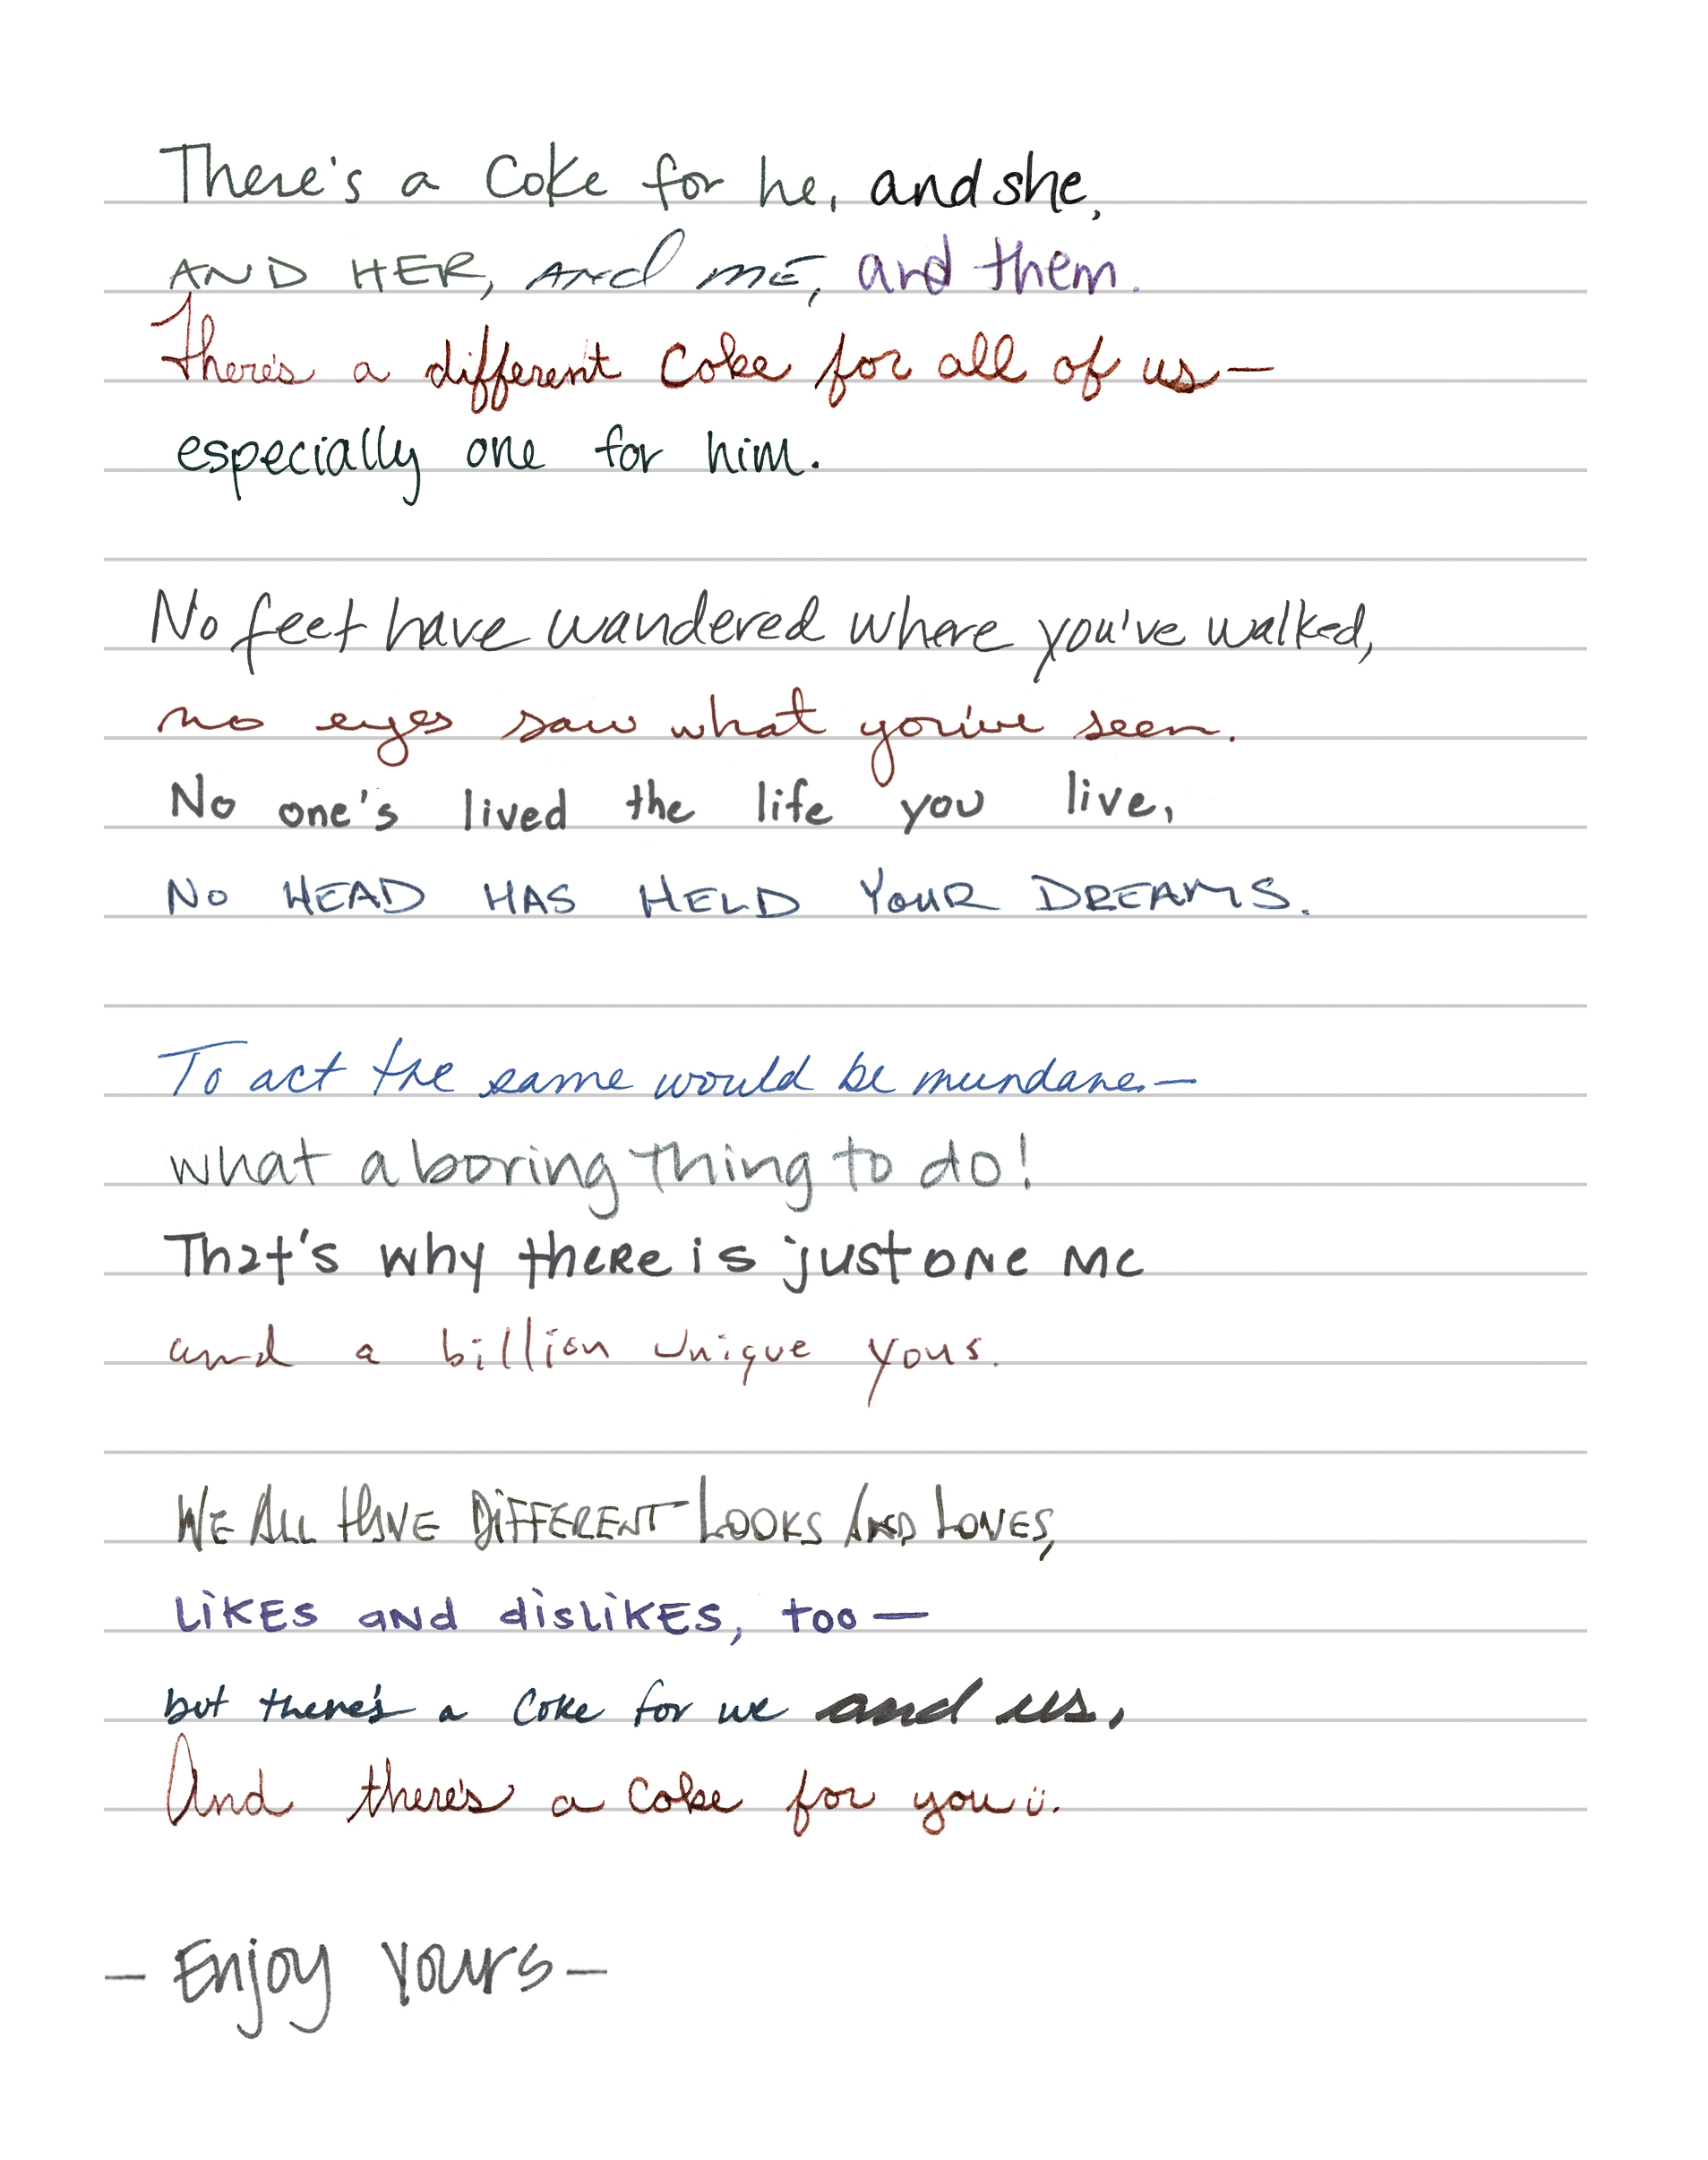 There's a Coke for he, and she,
AND HER, AND ME, and them.
There's a different Coke for all of us—
especially one for him.
No feet have wandered where you've walked,
no eyes saw what you've seen.
No one's lived the life you live,
NO HEAD HAS HELD YOUR DREAMS.
To act the same would be mundane—
what a boring thing to do!
That's why there is just one me
and a billion unique yous.
WE ALL HAVE DIFFERENT LOOKS AND LOVES,
LiKES aND disliKES, too—
but there's a Coke for we and us,
And there's a Coke for you ü.
- Enjoy Yours -